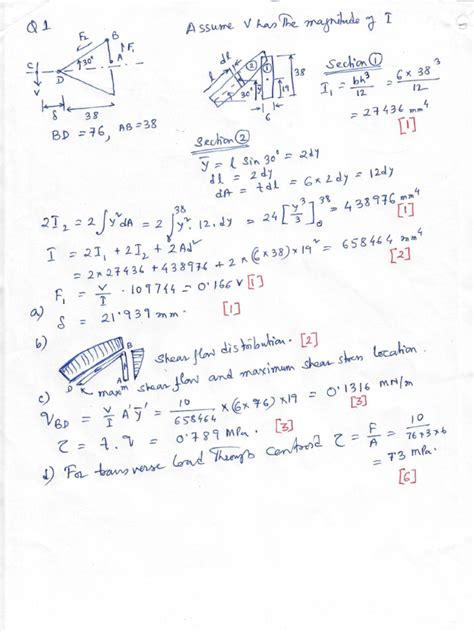 Q1
Assume V has the magnitude of I
F₂ B
↑F₁
C 30° A
D
δ 38
BD = 76, AB = 38
dl ② ①
l 30° y 19 38
6
Section ①
I₁ = bh³/12 = 6 × 38³/12
= 27436 mm⁴
[1]
Section ②
ȳ = l Sin 30° = 2dy
dl = 2dy
dA = tdl = 6 × 2dy = 12dy
2I₂ = 2∫y²dA = 2∫³⁸ y². 12. dy = 24 [y³/3]₀³⁸ = 438976 mm⁴
[1]
I = 2I₁ + 2I₂ + 2Ad²
= 2 × 27436 + 438976 + 2 × (6 × 38) × 19² = 658464 mm⁴
[2]
F₁ = V/I · 109744 = 0.166 V [1]
a) δ = 21.939 mm. [1]
b) B
D A
Shear flow distribution. [2]
max^m shear flow and maximum shear stress location.
c) q_BD = V/I A'ȳ' = 10/658464 × (6 × 76) × 19 = 0.1316 MN/m
[3]
τ = t. q = 0.789 MPa. [3]
d) For transverse load through centroid τ = F/A = 10/76×3×6
= 7.3 MPa.
[6]